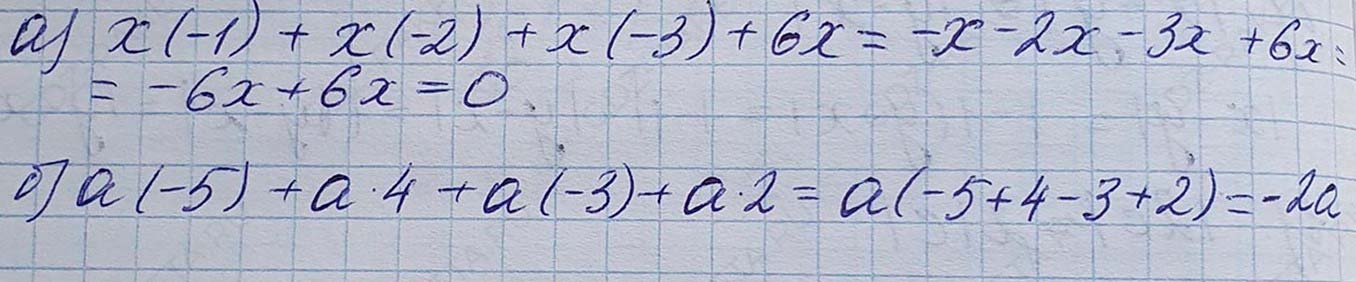 а) x(-1) + x(-2) + x(-3) + 6x = -x - 2x - 3x + 6x =
= -6x + 6x = 0
б) a(-5) + a·4 + a(-3) + a·2 = a(-5+4-3+2) = -2a